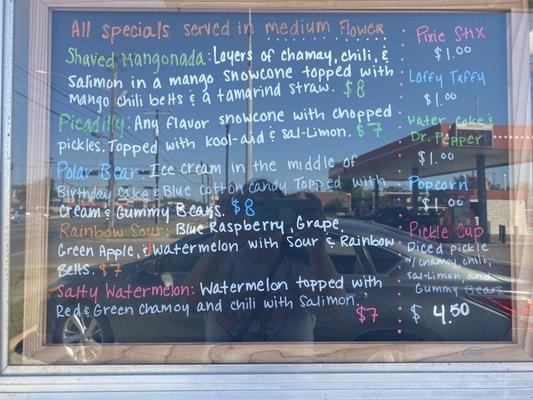 All specials served in medium flower
Shaved Mangonada: Layers of chamoy, chili, &
salimon in a mango snowcone topped with
mango chili belts & a tamarind straw. $8
Picadilly: Any flavor snowcone with chopped
pickles. Topped with kool-aid & sal-limon. $7
Polar Bear: Ice cream in the middle of
Birthday Cake & Blue Cotton Candy Topped with
Cream & Gummy Bears. $8
Rainbow Sour: Blue Raspberry, Grape,
Green Apple, & Watermelon with Sour & Rainbow
Belts. $7
Salty Watermelon: Watermelon topped with
Red & Green Chamoy and chili with Salimon.
$7
Pixie Stix
$1.00
Laffy Taffy
$1.00
Water, Coke &
Dr. Pepper
$1.00
Popcorn
$1.00
Pickle Cup
Diced pickle
w/ chamoy, chili,
sal-limon, and
Gummy Bears
$4.50